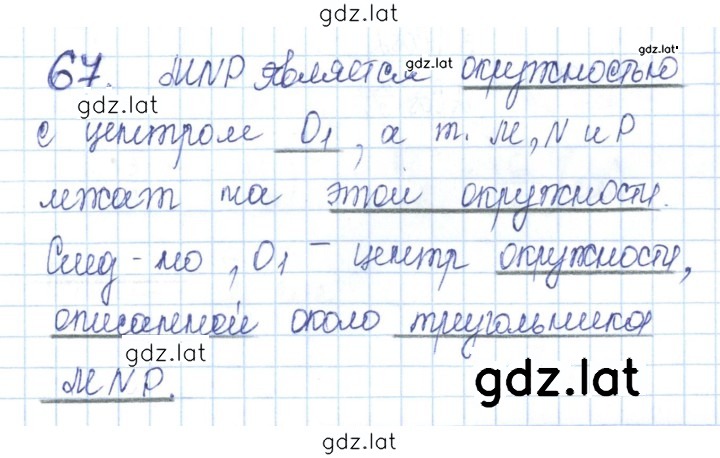 gdz.lat
67. MNP является gdz.lat окружностью gdz.lat
gdz.lat
с центром O₁, а т. M, N и P
лежат на этой окружности.
След-но, O₁ - центр окружности,
описанной около треугольника
gdz.lat
MNP. gdz.lat
gdz.lat